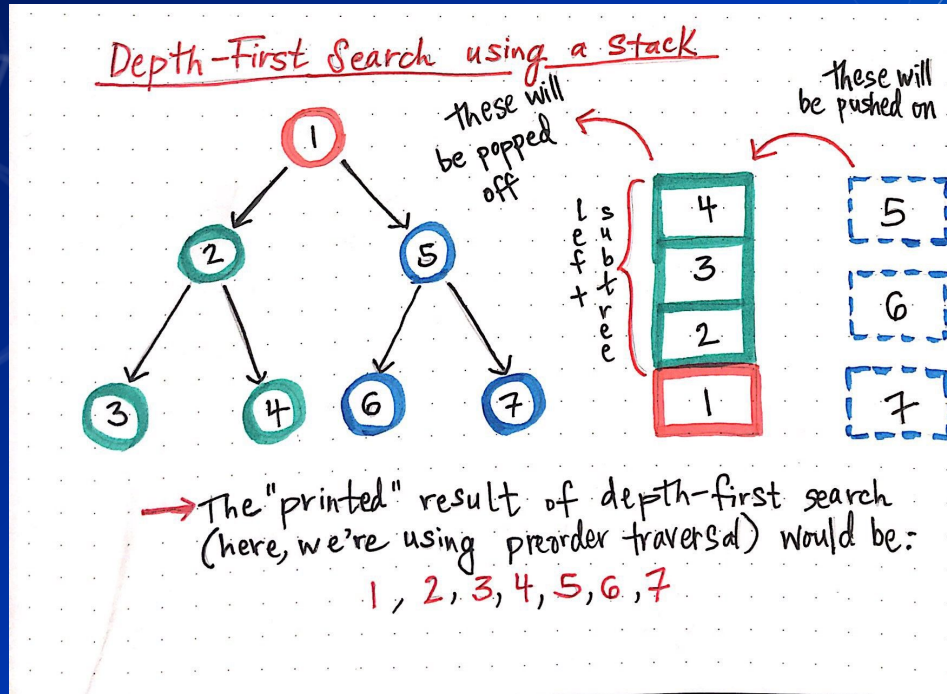 Depth-First Search using a Stack
these will
be popped
off
these will
be pushed on
1
2
5
3
4
6
7
left
subtree
4
3
2
1
5
6
7
→The "printed" result of depth-first search
(here, we're using preorder traversal) would be:
1, 2, 3, 4, 5, 6, 7